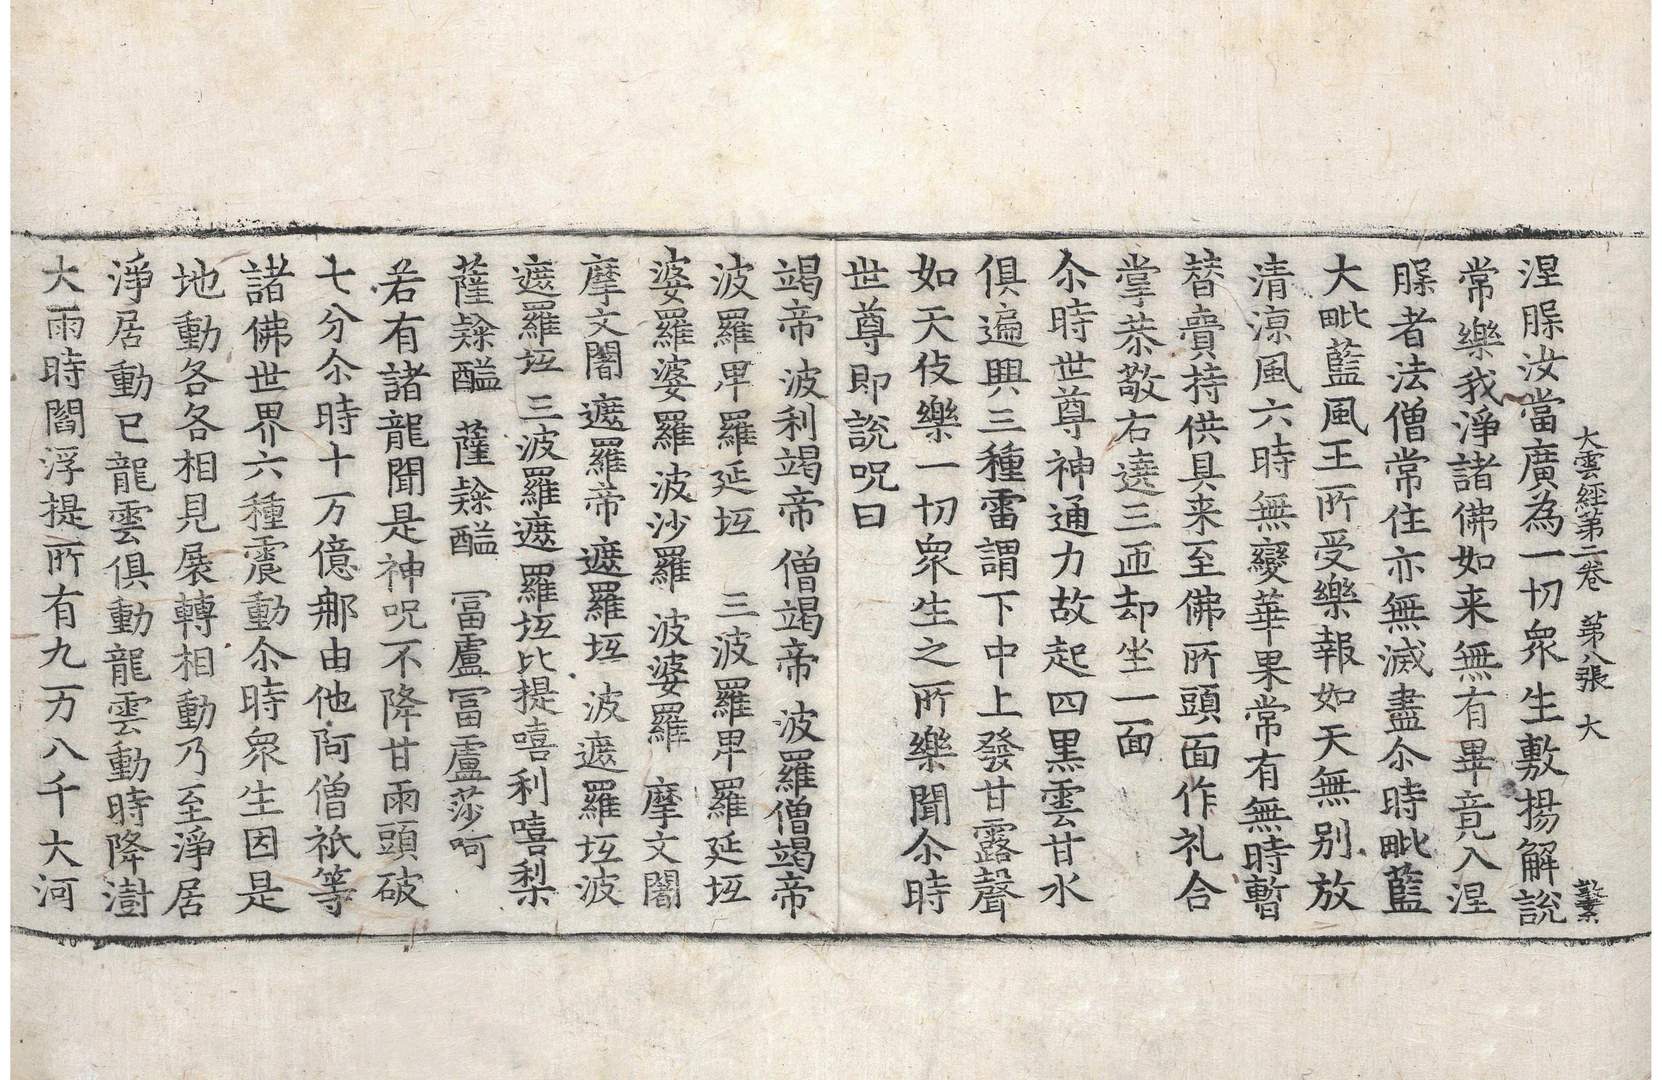 大雲経第二卷 第八張 大
涅脲汝當廣為一切衆生敷揚解説
常樂我淨諸佛如来無有畢竟入涅
脲者法僧常住亦無滅盡尒時毗藍
大毗藍風王所受樂報如天無別放
清涼風六時無變華果常有無時暫
替賷持供具来至佛所頭面作礼合
掌恭敬右遶三匝却坐一面
尒時世尊神通力故起四黒雲甘水
俱遍興三種雷謂下中上發甘露聲
如天伎樂一切衆生之所樂聞尒時
世尊即説呪曰
竭帝 波利竭帝 僧竭帝 波羅僧竭帝
波羅卑羅延坘 三波羅卑羅延坘
婆羅婆羅 波沙羅 波婆羅 摩文闍
摩文闍 遮羅帝 遮羅坘 波遮羅坘波
遮羅坘 三波羅遮羅坘比提嘻利嘻梨
薩𨽻醯 薩𨽻醯 冨盧冨盧莎呵
若有諸龍聞是神呪不降甘雨頭破
七分尒時十万億那由他阿僧祇等
諸佛世界六種震動尒時衆生因是
地動各各相見展轉相動乃至淨居
淨居動已龍雲俱動龍雲動時降澍
大雨時閻浮提所有九万八千大河